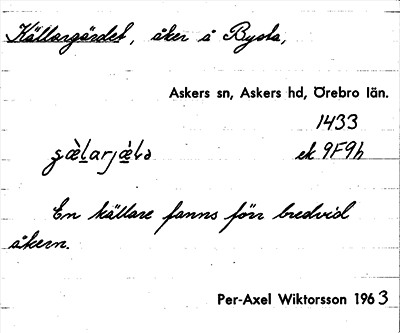 Källargärdet, åker å Bysta,
Askers sn, Askers hd, Örebro län.
1433
ek 9F9h
En källare fanns förr bredvid
åkern.
Per-Axel Wiktorsson 1963